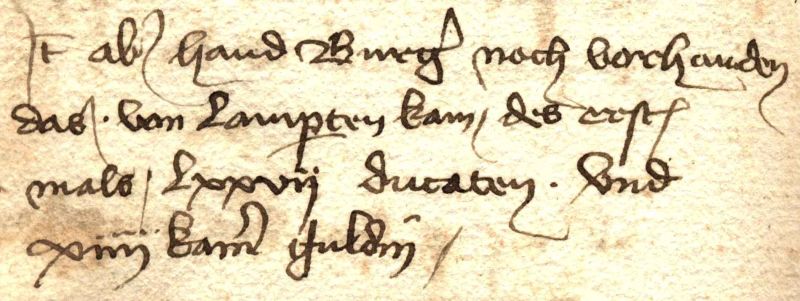 It ab hand Burg noch vorhanden
das . von Lamparten kam / des erst
mals / lxxvij ducaten . Vnd
xiiij kam guldin /